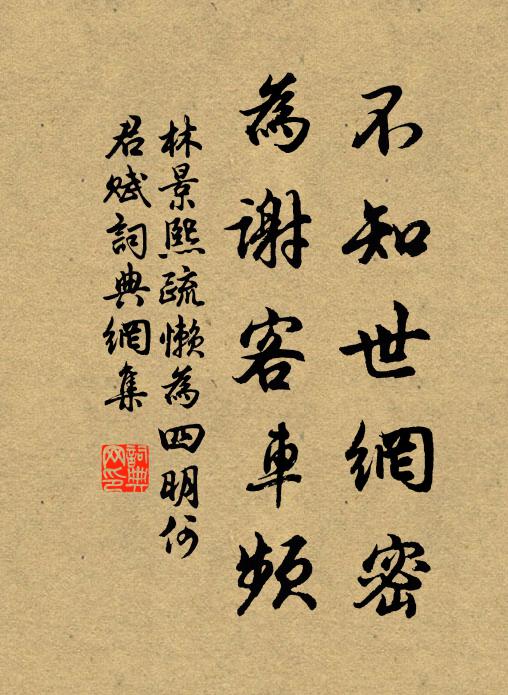 不知世網密
為謝客車頻
林景熙疏懶為四明何
君賦詞典網集
詞典
网印